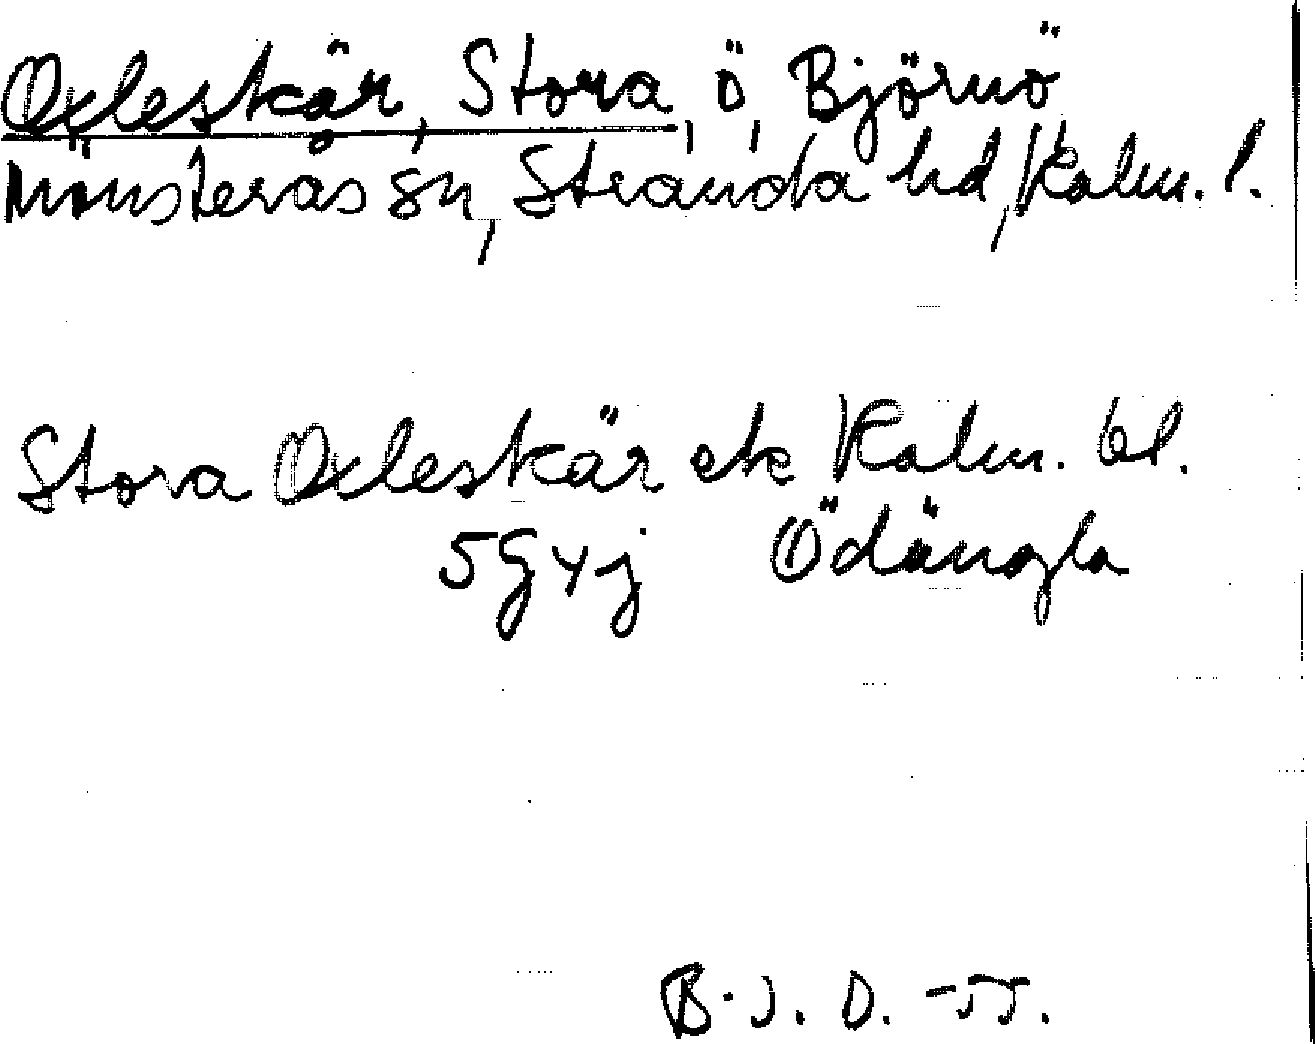 Oxleskär, Stora, ö, Björnö
Mönsterås sn, Stranda hd, Kalm. l.
Stora Oxleskär ek Kalm. bl.
5 G 4 j Ödängla
B. J. D. -55.